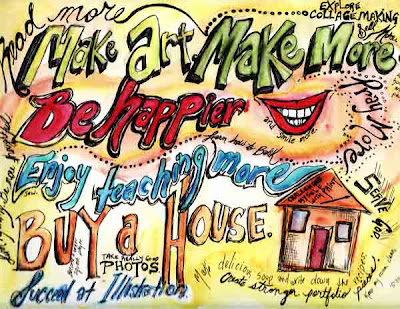 Read more
EXPLORE
COLLAGE MAKING
Make Art
Make More
Be happier
and smile more.
Play More
learn how to
Enjoy teaching more
SERVE God
BUY a HOUSE.
TAKE REALLY GOOD
PHOTOS
Make delicious soup and write down the recipes
Create stronger portfolio
Succeed at Illustration